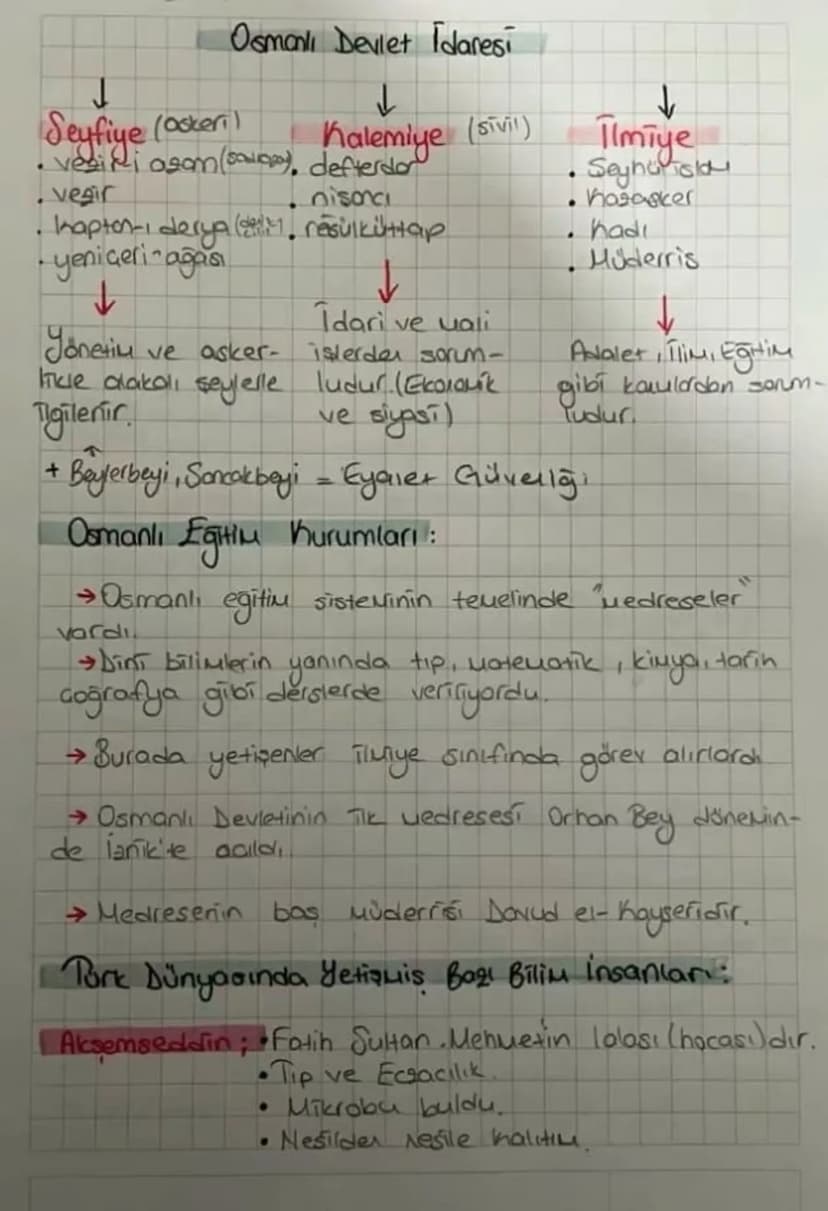 Osmanlı Devlet İdaresi
Seyfiye (askeri)
• vezir-i azam (sadrazam)
• vezir
• kaptan-ı derya
• yeniçeri-ağası
Yönetim ve asker-
likle alakalı şeylerle
ilgilenir.
Kalemiye (sivil)
• defterdar
• nişancı
• resülküttap
İdari ve mali
işlerden sorum-
ludur. (Ekonomik
ve siyasi)
İlmiye
• Şeyhülislam
• Kazasker
• Kadı
• Müderris
Adalet, İlim, Eğitim
gibi konulardan sorum-
ludur.
+ Beylerbeyi, Sancakbeyi = Eyalet Güvenliği
Osmanlı Eğitim Kurumları:
→ Osmanlı eğitim sisteminin temelinde "medreseler"
vardı.
→ Dini bilimlerin yanında tıp, matematik, kimya, tarih
coğrafya gibi derslerde veriliyordu.
→ Burada yetişenler ilmiye sınıfında görev alırlardı
→ Osmanlı Devletinin ilk medresesi Orhan Bey dönemin-
de İznik'te açıldı.
→ Medresenin baş müderrisi Davud el-Kayseridir.
Türk Dünyasında Yetişmiş Bazı Bilim İnsanları:
Akşemseddin; • Fatih Sultan Mehmetin lalası (hocası)dır.
• Tıp ve Eczacılık.
• Mikrobu buldu.
• Nesilden nesile kalıtım.